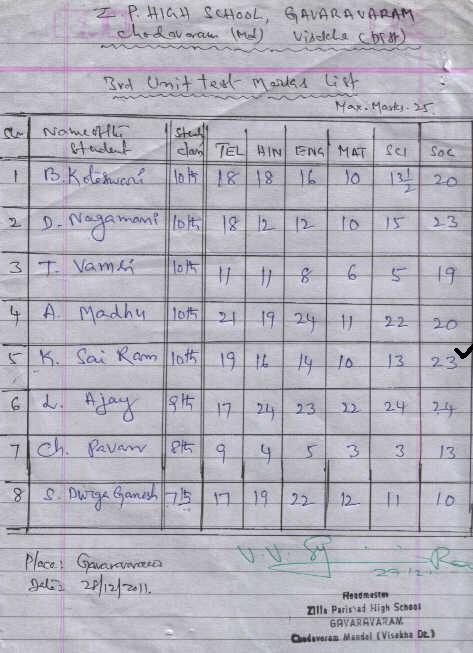 Z P. HIGH SCHOOL, GAVARAVARAM
Chodavaram (Md) Visakha (Dist)
3rd Unit test Marks List
Max. Marks. 25.
Name of the Student class TEL HIN ENG MAT SCI SOC
1 B. Koteswari 10th 18 18 16 10 13 1/2 20
2 D. Nagamani 10th 18 12 12 10 15 23
3 T. Vamsi 10th 11 11 8 6 5 19
4 A. Madhu 10th 21 19 24 11 22 20
5 K. Sai Ram 10th 19 16 14 10 13 23
6 L. Ajay 9th 17 24 23 22 24 24
7 Ch. Pavan 8th 9 4 5 3 3 13
8 S. Durga Ganesh 7th 17 19 22 12 11 10
Place: Gavaravaram
Date: 28/12/2011.
Headmaster
Zilla Parishad High School
GAVARAVARAM
Chodavaram Mandal (Visakha Dt.)